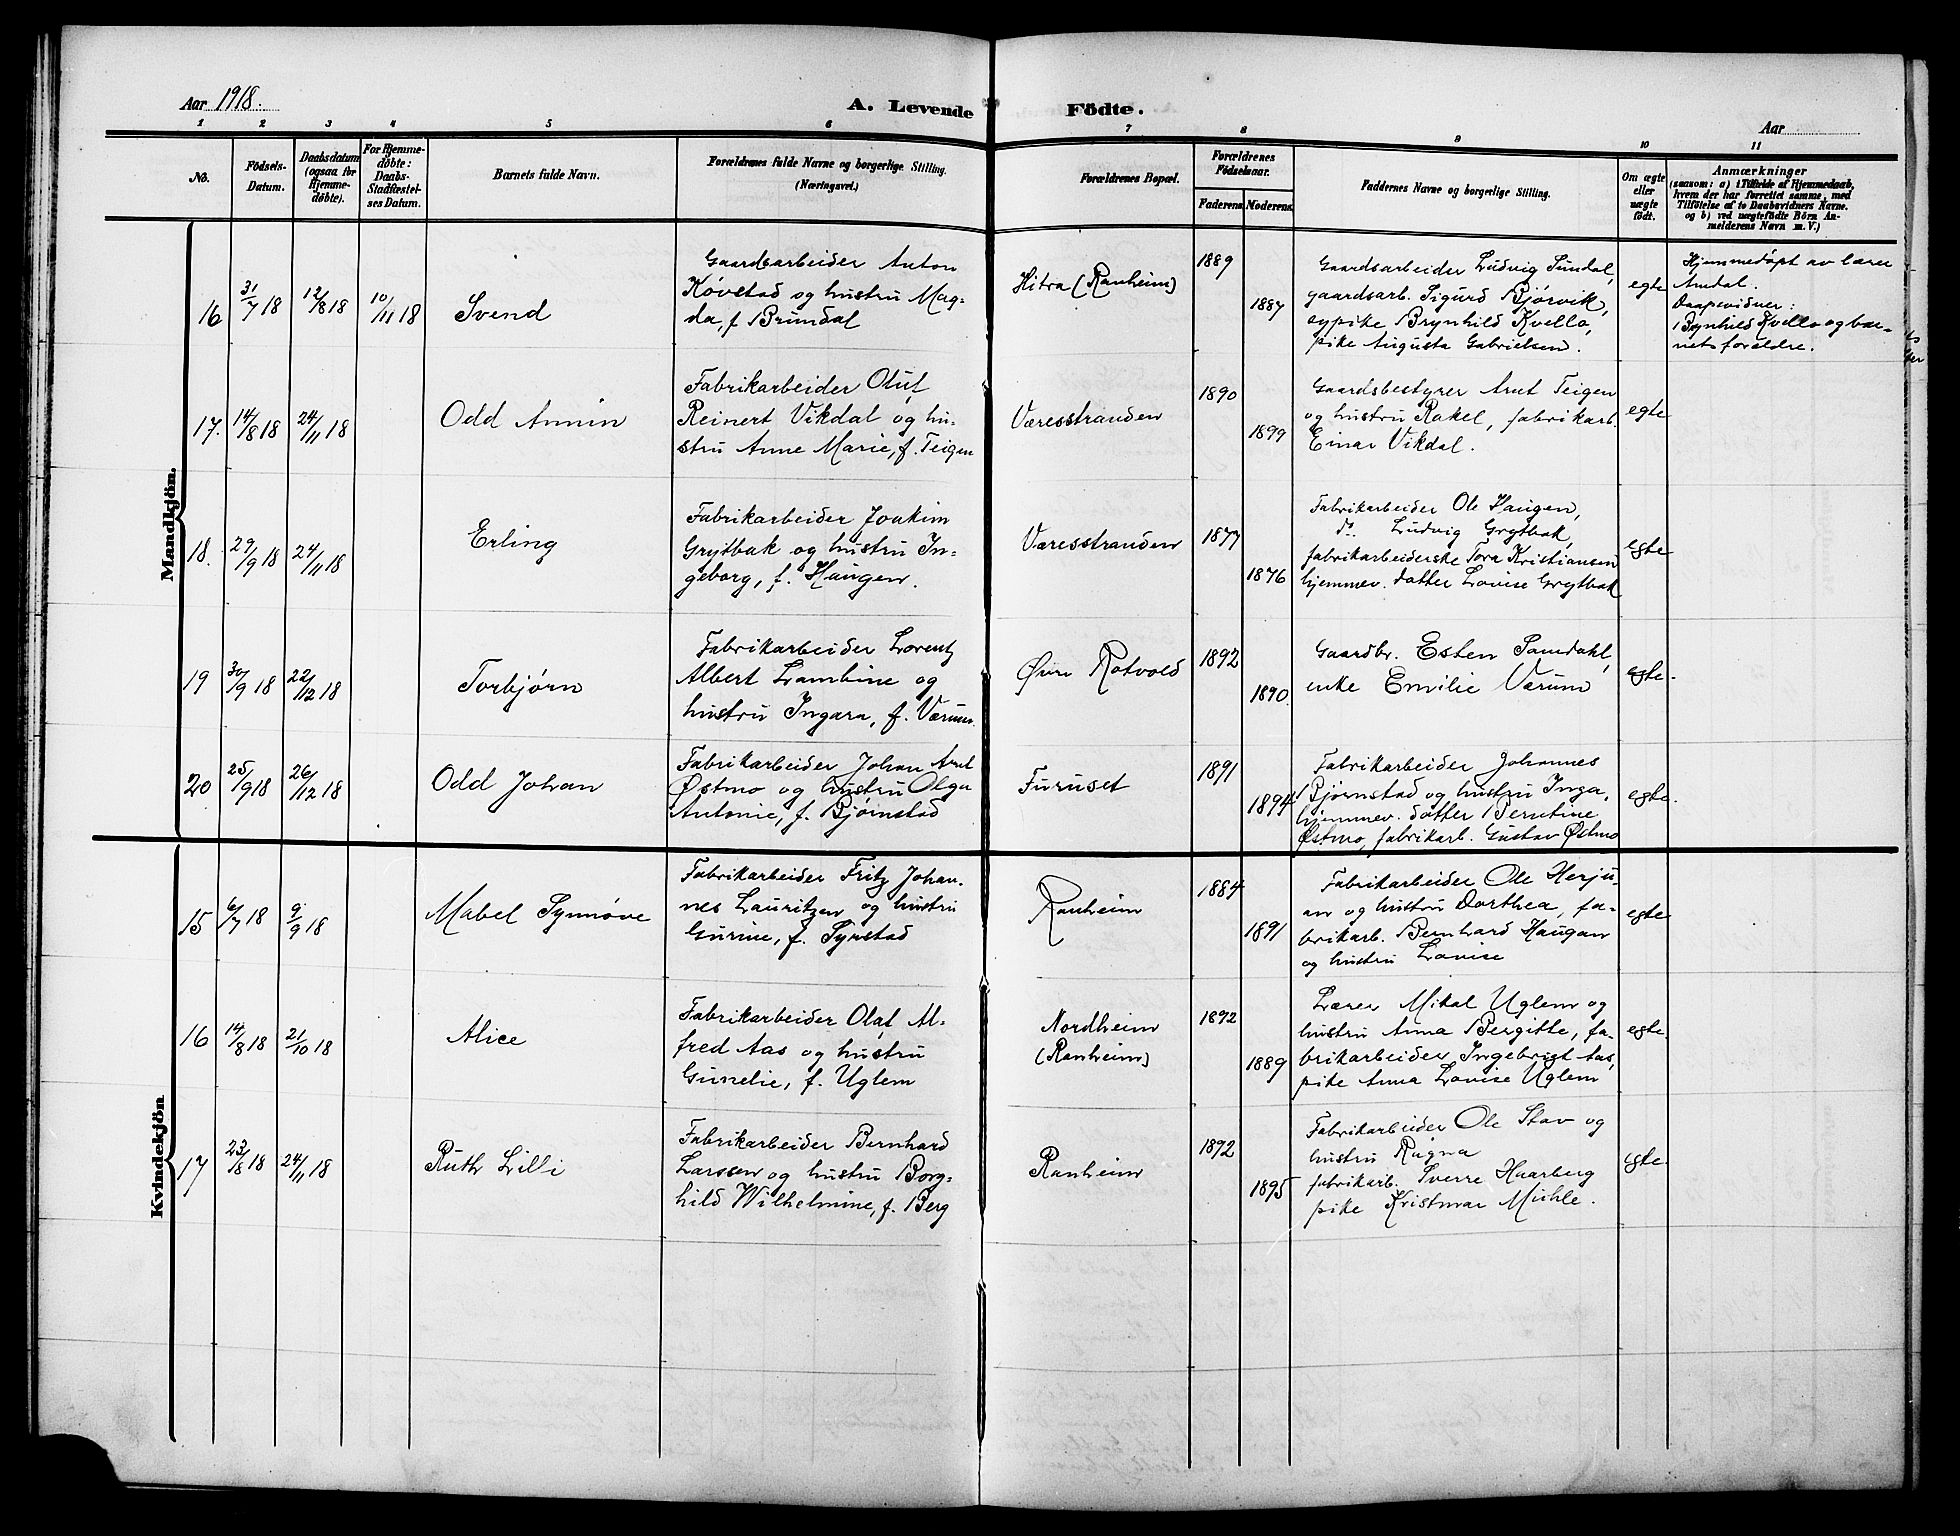 Aar 1918.
A. Levende Födte.
Aar
1 2 3 4 5 6 7 8 9 10 11
No.
Födsels-
Datum.
Daabsdatum
(ogsaa for
Hjemme-
døbte).
For Hjemme-
døbte:
Daabs-
Stadfæstel-
ses Datum.
Barnets fulde Navn.
Forældrenes fulde Navne og borgerlige Stilling.
(Næringsvei.)
Forældrenes Bopæl.
Forældrenes
Födselsaar.
Faderens. Moderens.
Faddernes Navne og borgerlige Stilling.
Om ægte
eller
uægte
födt.
Anmærkninger
(saasom: a) i Tilfælde af Hjemmedaab,
hvem der har forrettet samme, med
Tilföielse af to Daabsvidners Navne.
og b) ved uægtefödte Börn An-
melderens Navn m. V.)
Mandkjön.
16 31/7 18 12/8 18 10/11 18 Svend
Gaardsarbeider Anton
Kövstad og hustru Mag-
da, f. Brundal
Hitra (Ranheim)
1889
1887
Gaardsarbeider Ludvig Sundal,
gaardsarb. Sigurd Bjørvik,
sypike Brynhild Kvello,
pike Augusta Gabrielsen.
egte
Hjemmedøpt av lærer
Amdal.
Daapsvidner:
Brynhild Kvello og bar-
nets forældre.
17. 14/8 18 24/11 18 Odd Armin
Fabrikarbeider Oluf
Reinert Vikdal og hu-
stru Anne Marie, f. Teigen
Væresstranden
1890
1899
Gaardsbestyrer Arnt Teigen
og hustru Rakel, fabrikarb.
Einar Vikdal.
egte
18. 29/9 18 24/11 18 Erling
Fabrikarbeider Joakim
Grytbak og hustru In-
geborg, f. Haugen.
Væresstranden
1877
1876
Fabrikarbeider Ole Haugen,
do. Ludvig Grytbak,
fabrikarbeiderske Tora Kristiansen
hjemmev. datter Lovise Grytbak
egte
19 30/9 18 22/12 18 Torbjørn
Fabrikarbeider Lorentz
Albert Lambine og
hustru Ingara, f. Værum.
Øvre Rotvold
1892
1890
Gaardbr. Esten Samdahl,
enke Emilie Værum
egte.
20 25/9 18 26/12 18 Odd Johan
Fabrikarbeider Johan Arnt
Østmo og hustru Olga
Antonie, f. Bjørnstad
Furuset
1891
1894
Fabrikarbeider Johannes
Bjørnstad og hustru Inga,
hjemmev. datter Berntine
Østmo, fabrikarb. Gustav Østmo
egte.
Kvindekjön
15 6/7 18 9/9 18 Mabel Synnøve
Fabrikarbeider Fritz Johan-
nes Lauritzen og hustru
Gurine, f. Syrstad
Ranheim
1884
1891
Fabrikarbeider Ole Herju-
an og hustru Dorthea, fa-
brikarb. Bernhard Haugan
og hustru Lovise
egte
16 14/8 18 21/10 18 Alice
Fabrikarbeider Olaf Al-
fred Aas og hustru
Gunelie, f. Uglem
Nordheim
(Ranheim)
1892
1889
Lærer Mikal Uglem og
hustru Anna Bergitte, fa-
brikarbeider Ingebrigt Aas,
pike Anna Lovise Uglem
egte.
17 23/8 18 24/11 18 Ruth Lilli
Fabrikarbeider Bernhard
Larssen og hustru Borg-
hild Wilhelmine, f. Berg
Ranheim
1892
1895
Fabrikarbeider Ole Stav og
hustru Ragna
fabrikarb. Sverre Haarberg
pike Kristmar Mühle.
egte.